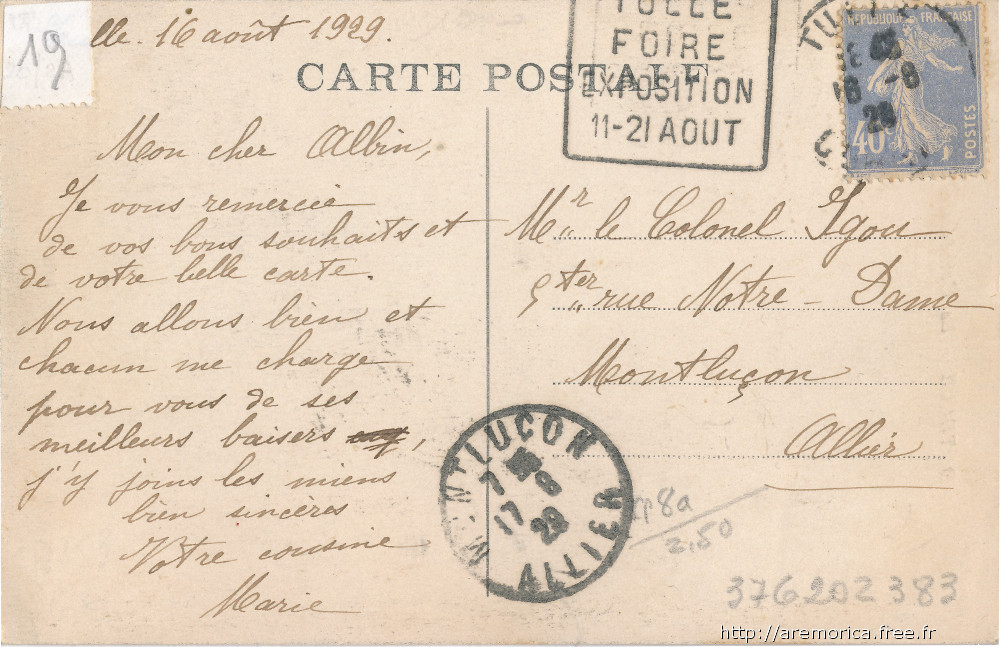 19
lle. 16 août 1929.
CARTE POSTALE
TULLE
FOIRE
EXPOSITION
11-21 AOUT
TUL
16 -8
REPUBLIQUE FRANÇAISE
40c
POSTES
Mon cher Albin,
Je vous remercie
de vos bons souhaits et
de votre belle carte.
Nous allons bien et
chacun me charge
pour vous de ses
meilleurs baisers,
j'y joins les miens
bien sincères
Votre cousine
Marie
Mr le Colonel Igou
5 ter rue Notre-Dame
Montluçon
Allier
MONTLUCON
17 8
29
ALLIER
cp 8a
2,50
376202383
http://aremorica.free.fr